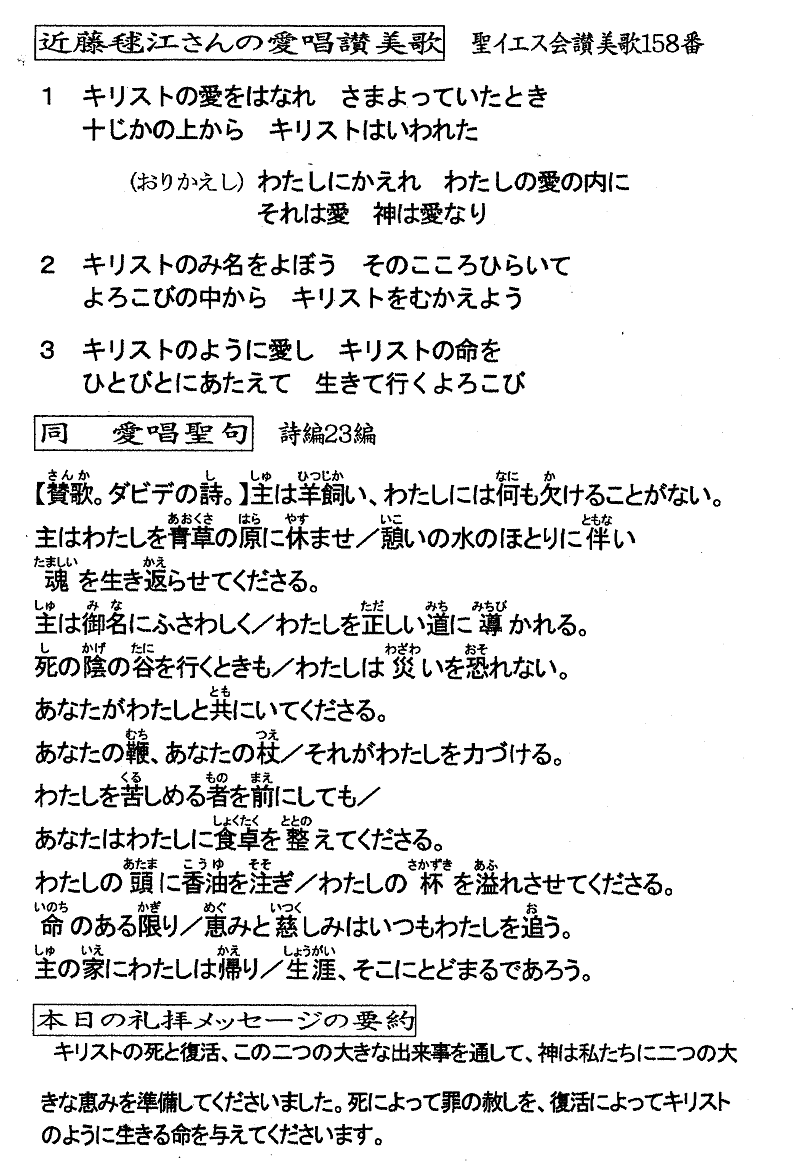 近藤毬江さんの愛唱讃美歌　聖イエス会讃美歌158番
1　キリストの愛をはなれ　さまよっていたとき
十じかの上から　キリストはいわれた
（おりかえし）わたしにかえれ　わたしの愛の内に
それは愛　神は愛なり
2　キリストのみ名をよぼう　そのこころひらいて
よろこびの中から　キリストをむかえよう
3　キリストのように愛し　キリストの命を
ひとびとにあたえて　生きて行くよろこび
同　愛唱聖句　詩編23編
さんか　し　しゅ　ひつじか　なに　か
【賛歌。ダビデの詩。】主は羊飼い、わたしには何も欠けることがない。
あおくさ　はら　やす　いこ　ともな
主はわたしを青草の原に休ませ／憩いの水のほとりに伴い
たましい　かえ
魂を生き返らせてくださる。
しゅ　み　な　ただ　みち　みちび
主は御名にふさわしく／わたしを正しい道に導かれる。
し　かげ　たに　わざわ　おそ
死の陰の谷を行くときも／わたしは災いを恐れない。
とも
あなたがわたしと共にいてくださる。
むち　つえ
あなたの鞭、あなたの杖／それがわたしを力づける。
くる　もの　まえ
わたしを苦しめる者を前にしても／
しょくたく　ととの
あなたはわたしに食卓を整えてくださる。
あたま　こうゆ　そそ　さかずき　あふ
わたしの頭に香油を注ぎ／わたしの杯を溢れさせてくださる。
いのち　かぎ　めぐ　いつく　お
命のある限り／恵みと慈しみはいつもわたしを追う。
しゅ　いえ　かえ　しょうがい
主の家にわたしは帰り／生涯、そこにとどまるであろう。
本日の礼拝メッセージの要約
キリストの死と復活、この二つの大きな出来事を通して、神は私たちに二つの大
きな恵みを準備してくださいました。死によって罪の赦しを、復活によってキリスト
のように生きる命を与えてくださいます。